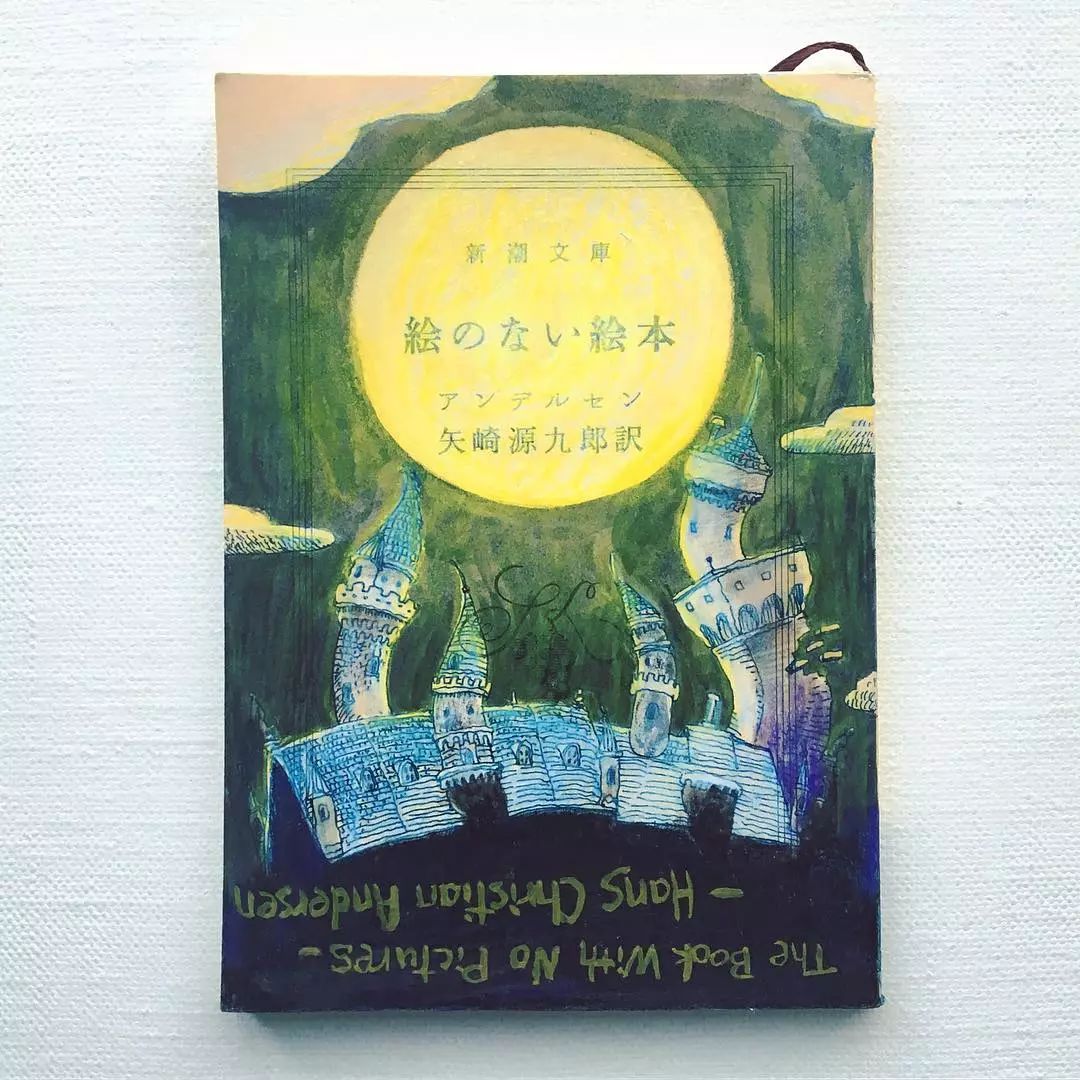 新潮文庫
絵のない絵本
アンデルセン
矢崎源九郎訳
The Book With No Pictures -
- Hans Christian Andersen